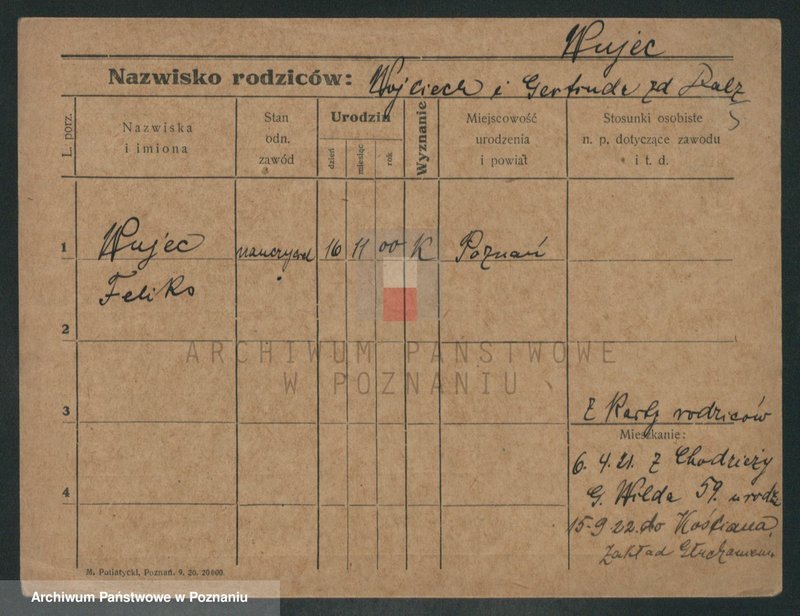 Wujec
Nazwisko rodziców: Wojciech i Gertruda zd
L. porz.
Nazwiska i imiona
Stan odn. zawód
Urodzin
dzień
miesiąc
rok
Wyznanie
Miejscowość urodzenia i powiat
Stosunki osobiste n. p. dotyczące zawodu i t. d.
1 Wujec nauczyciel 16 11 00 K Poznań
Feliks
2
3
4
ARCHIWUM PAŃSTWOWE
W POZNANIU
z Karty rodziców
Mieszkanie:
6. 4. 21. z Chodzieży
G. Wilda 59. u rodz
15-9 22. do Kościana,
Zakład
M. Putiatycki, Poznań. 9. 20. 20000.
Archiwum Państwowe w Poznaniu